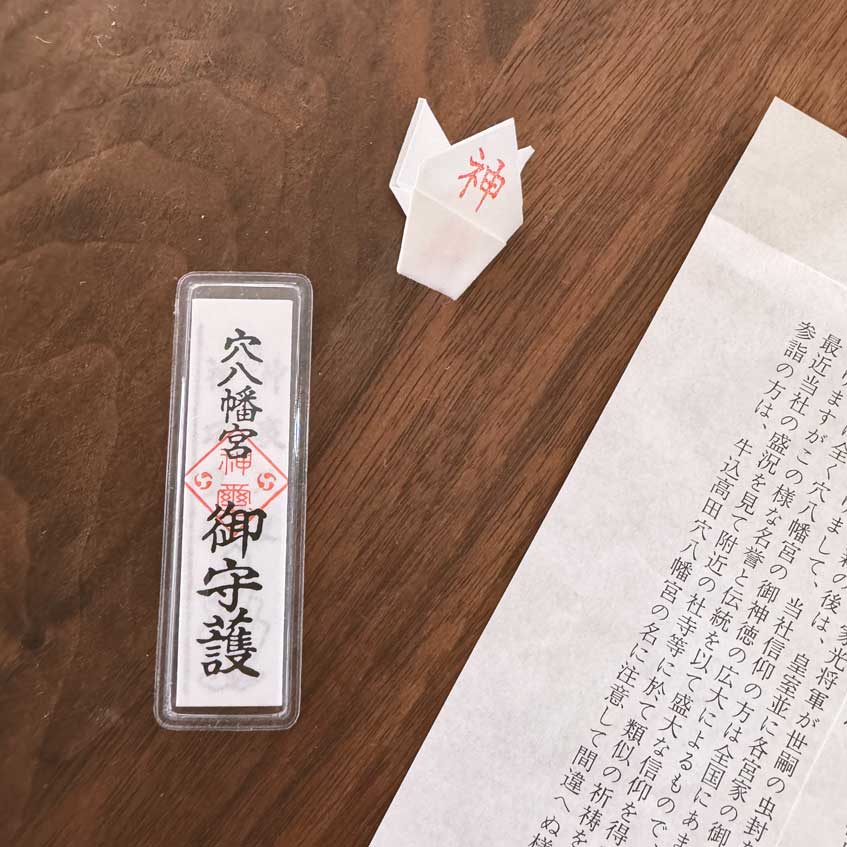 穴八幡宮
神璽
御守護
神
家光将軍が世嗣の虫封
の後は、皇室並に各宮家の御
けまして、当社信仰の方は全国にあま
は全く穴八幡宮の御神徳の広大によるもので、
りますがこの様な名誉と伝統を以て盛大な信仰を得
最近当社の盛況を見て附近の社寺等に於て類似の祈祷を
参詣の方は、牛込高田穴八幡宮の名に注意して間違へぬ様